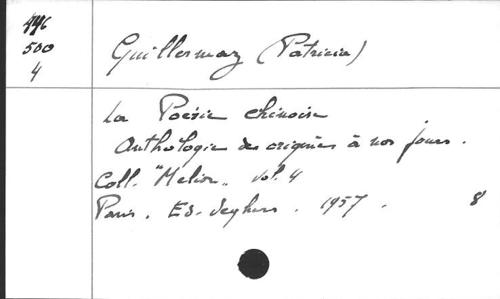 496
500
4
Guillermaz (Patricia)
La Poésie chinoise
Anthologie des origines à nos jours.
Coll. "Melior" vol. 4
Paris. Ed. Seghers. 1957.
8